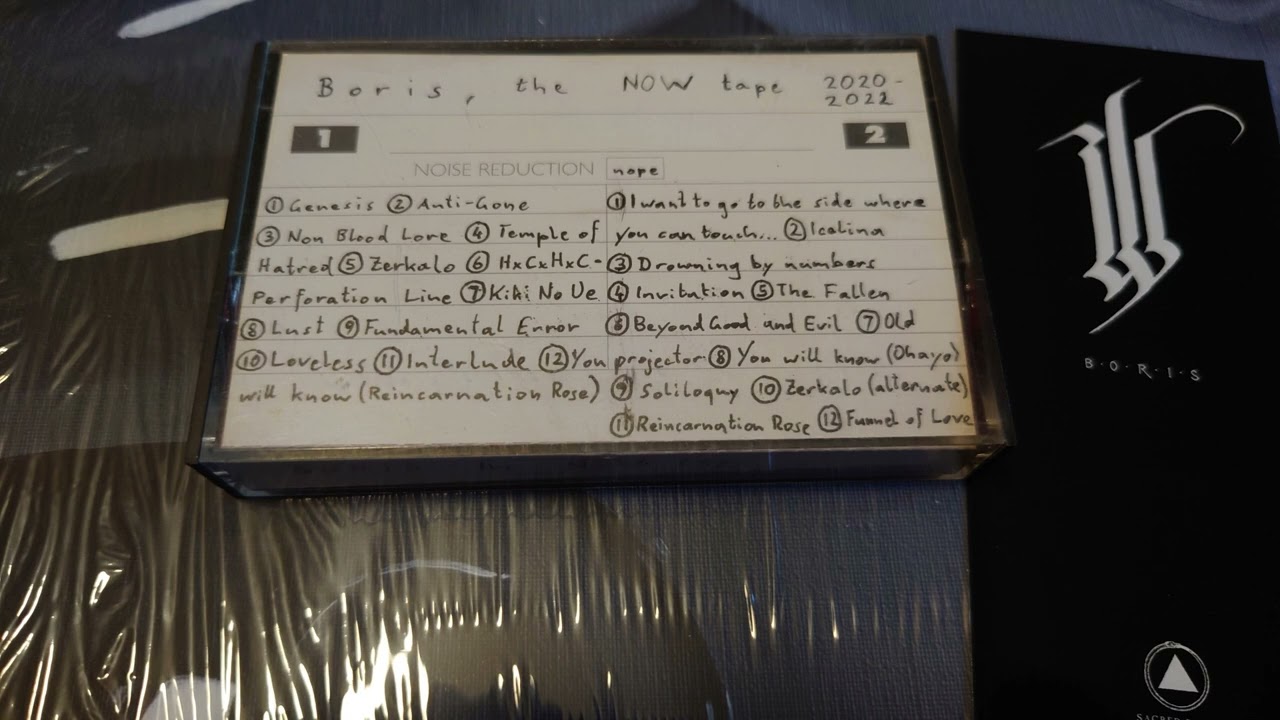 Boris, the NOW tape 2020-
2022
1
2
NOISE REDUCTION nope
① Genesis ② Anti-Gone
③ Non Blood Lore ④ Temple of
Hatred ⑤ Zerkalo ⑥ HxCxHxC-
Perforation Line ⑦ Kiki No Ue
⑧ Lust ⑨ Fundamental Error
⑩ Loveless ⑪ Interlude ⑫ You
will know (Reincarnation Rose)
① I want to go to the side where
you can touch... ② Icelina
③ Drowning by numbers
④ Invitation ⑤ The Fallen
⑥ Beyond Good and Evil ⑦ Old
projector ⑧ You will know (Ohayo)
⑨ Soliloquy ⑩ Zerkalo (alternate)
⑪ Reincarnation Rose ⑫ Funnel of Love
B·O·R·I·S